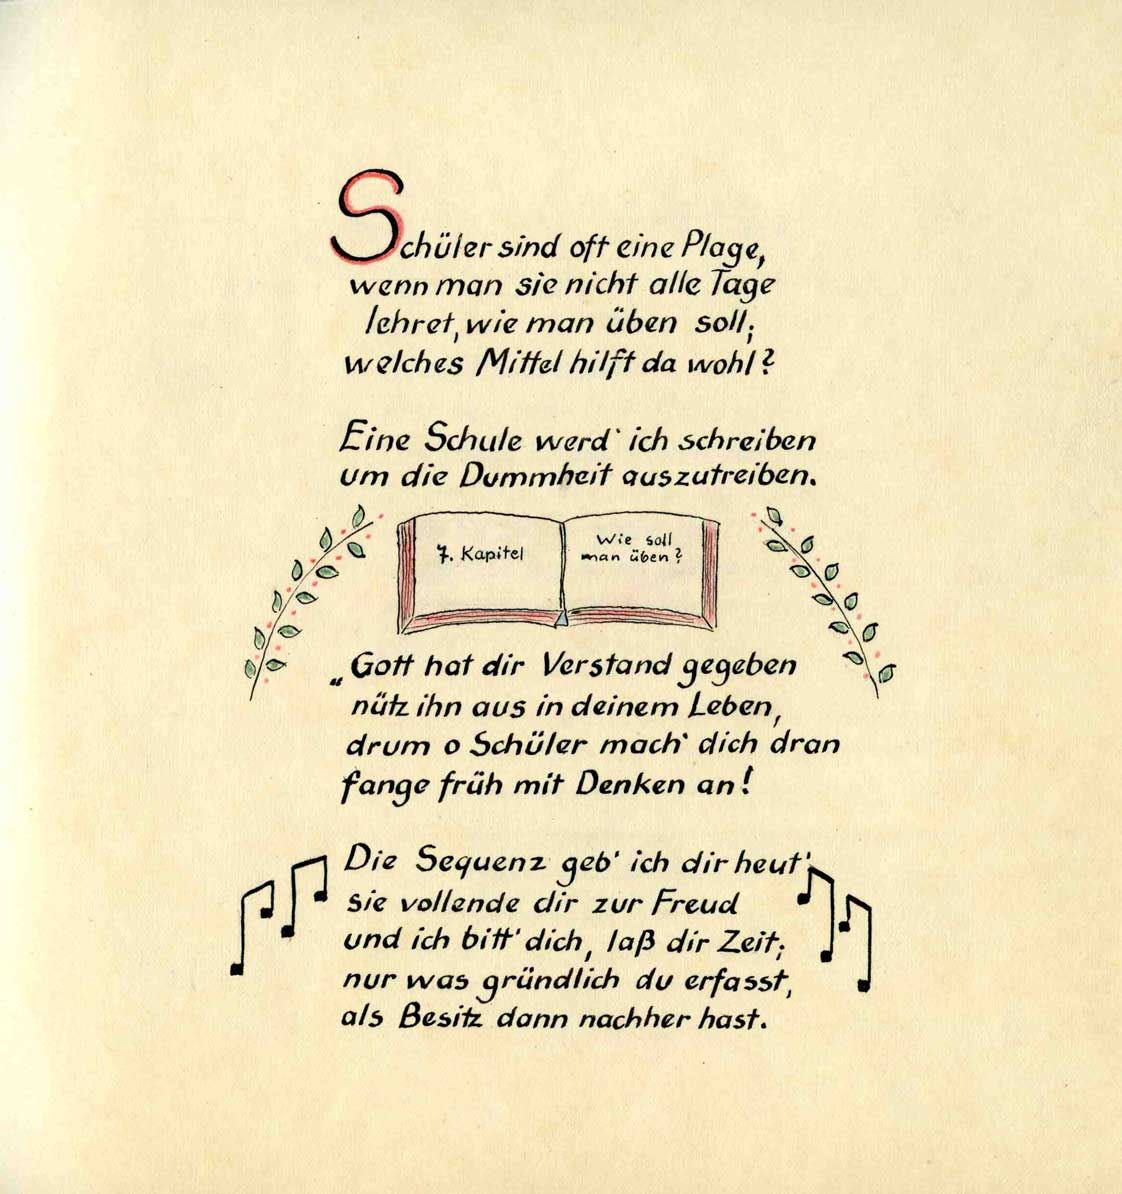 Schüler sind oft eine Plage,
wenn man sie nicht alle Tage
lehret, wie man üben soll;
welches Mittel hilft da wohl?
Eine Schule werd' ich schreiben
um die Dummheit auszutreiben.
7. Kapitel
Wie soll
man üben?
„Gott hat dir Verstand gegeben
nütz ihn aus in deinem Leben,
drum o Schüler mach' dich dran
fange früh mit Denken an!
Die Sequenz geb' ich dir heut'
sie vollende dir zur Freud
und ich bitt' dich, laß dir Zeit;
nur was gründlich du erfasst,
als Besitz dann nachher hast.